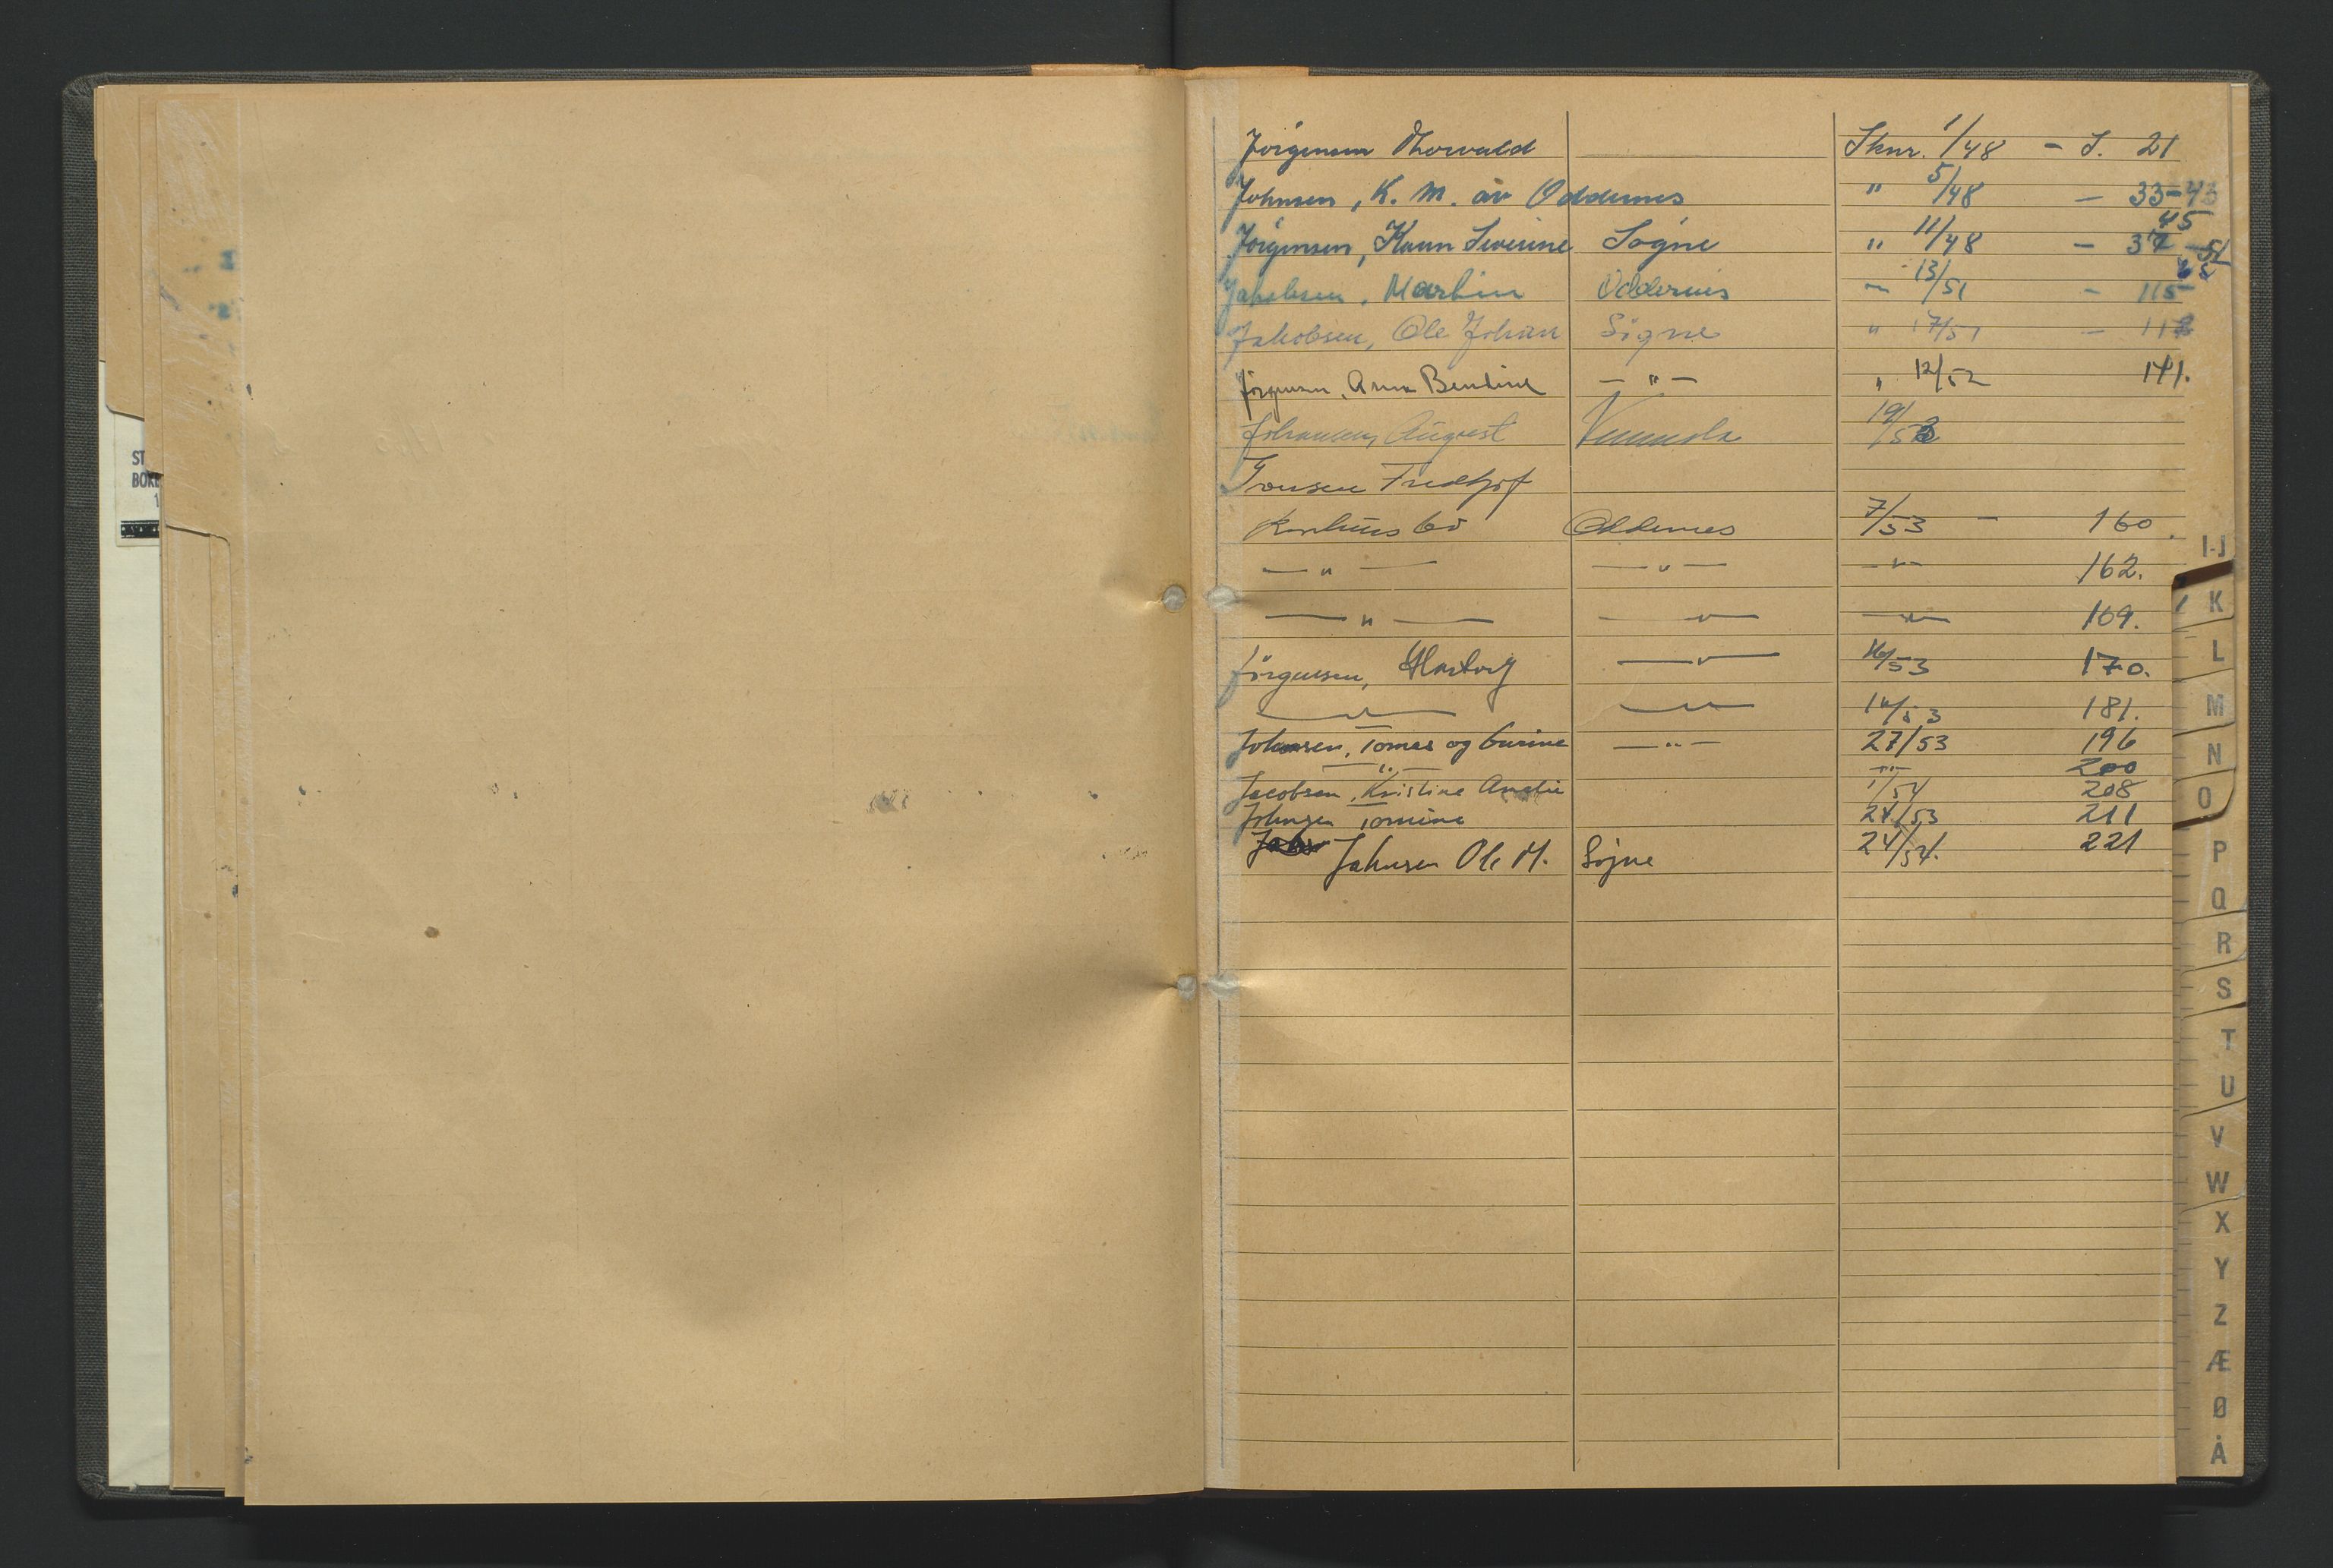 ST
BOKE
1
Jörgensen Thorvald Sknr. 1/48 - S. 21
Johnsen, K. M. av Oddernes " 5/48 - 33-43
45
Jörgensen, Karen Severine Søgne " 11/48 - 37 - 51
Jakobsen, Martin Oddernes - " - 13/51 - 115
Jakobsen, Ole Johan Sögne " 17/51 - 118
Jörgensen, Anna Bendine - " - " 12/52 141.
Johansen, August Vennesla 19/53
Ivensen Fredtjof
konkurs bo Oddernes 7/53 - 160
- " - - " - - " - 162.
- " - - " - - " - 169.
Jörgensen, - " - 16/53 170.
- " - - " - 14/53 181.
Johnsen, Tomas og Gurine - " - 27/53 196
- " - - " - 200
Jacobsen, Kristine Amalie 1/54 208
Johnsen Tomine 24/53 211
Johnsen Ole M. Søgne 24/54. 221
I-J
K
L
M
N
O
P
Q
R
S
T
U
V
W
X
Y
Z
Æ
Ø
Å